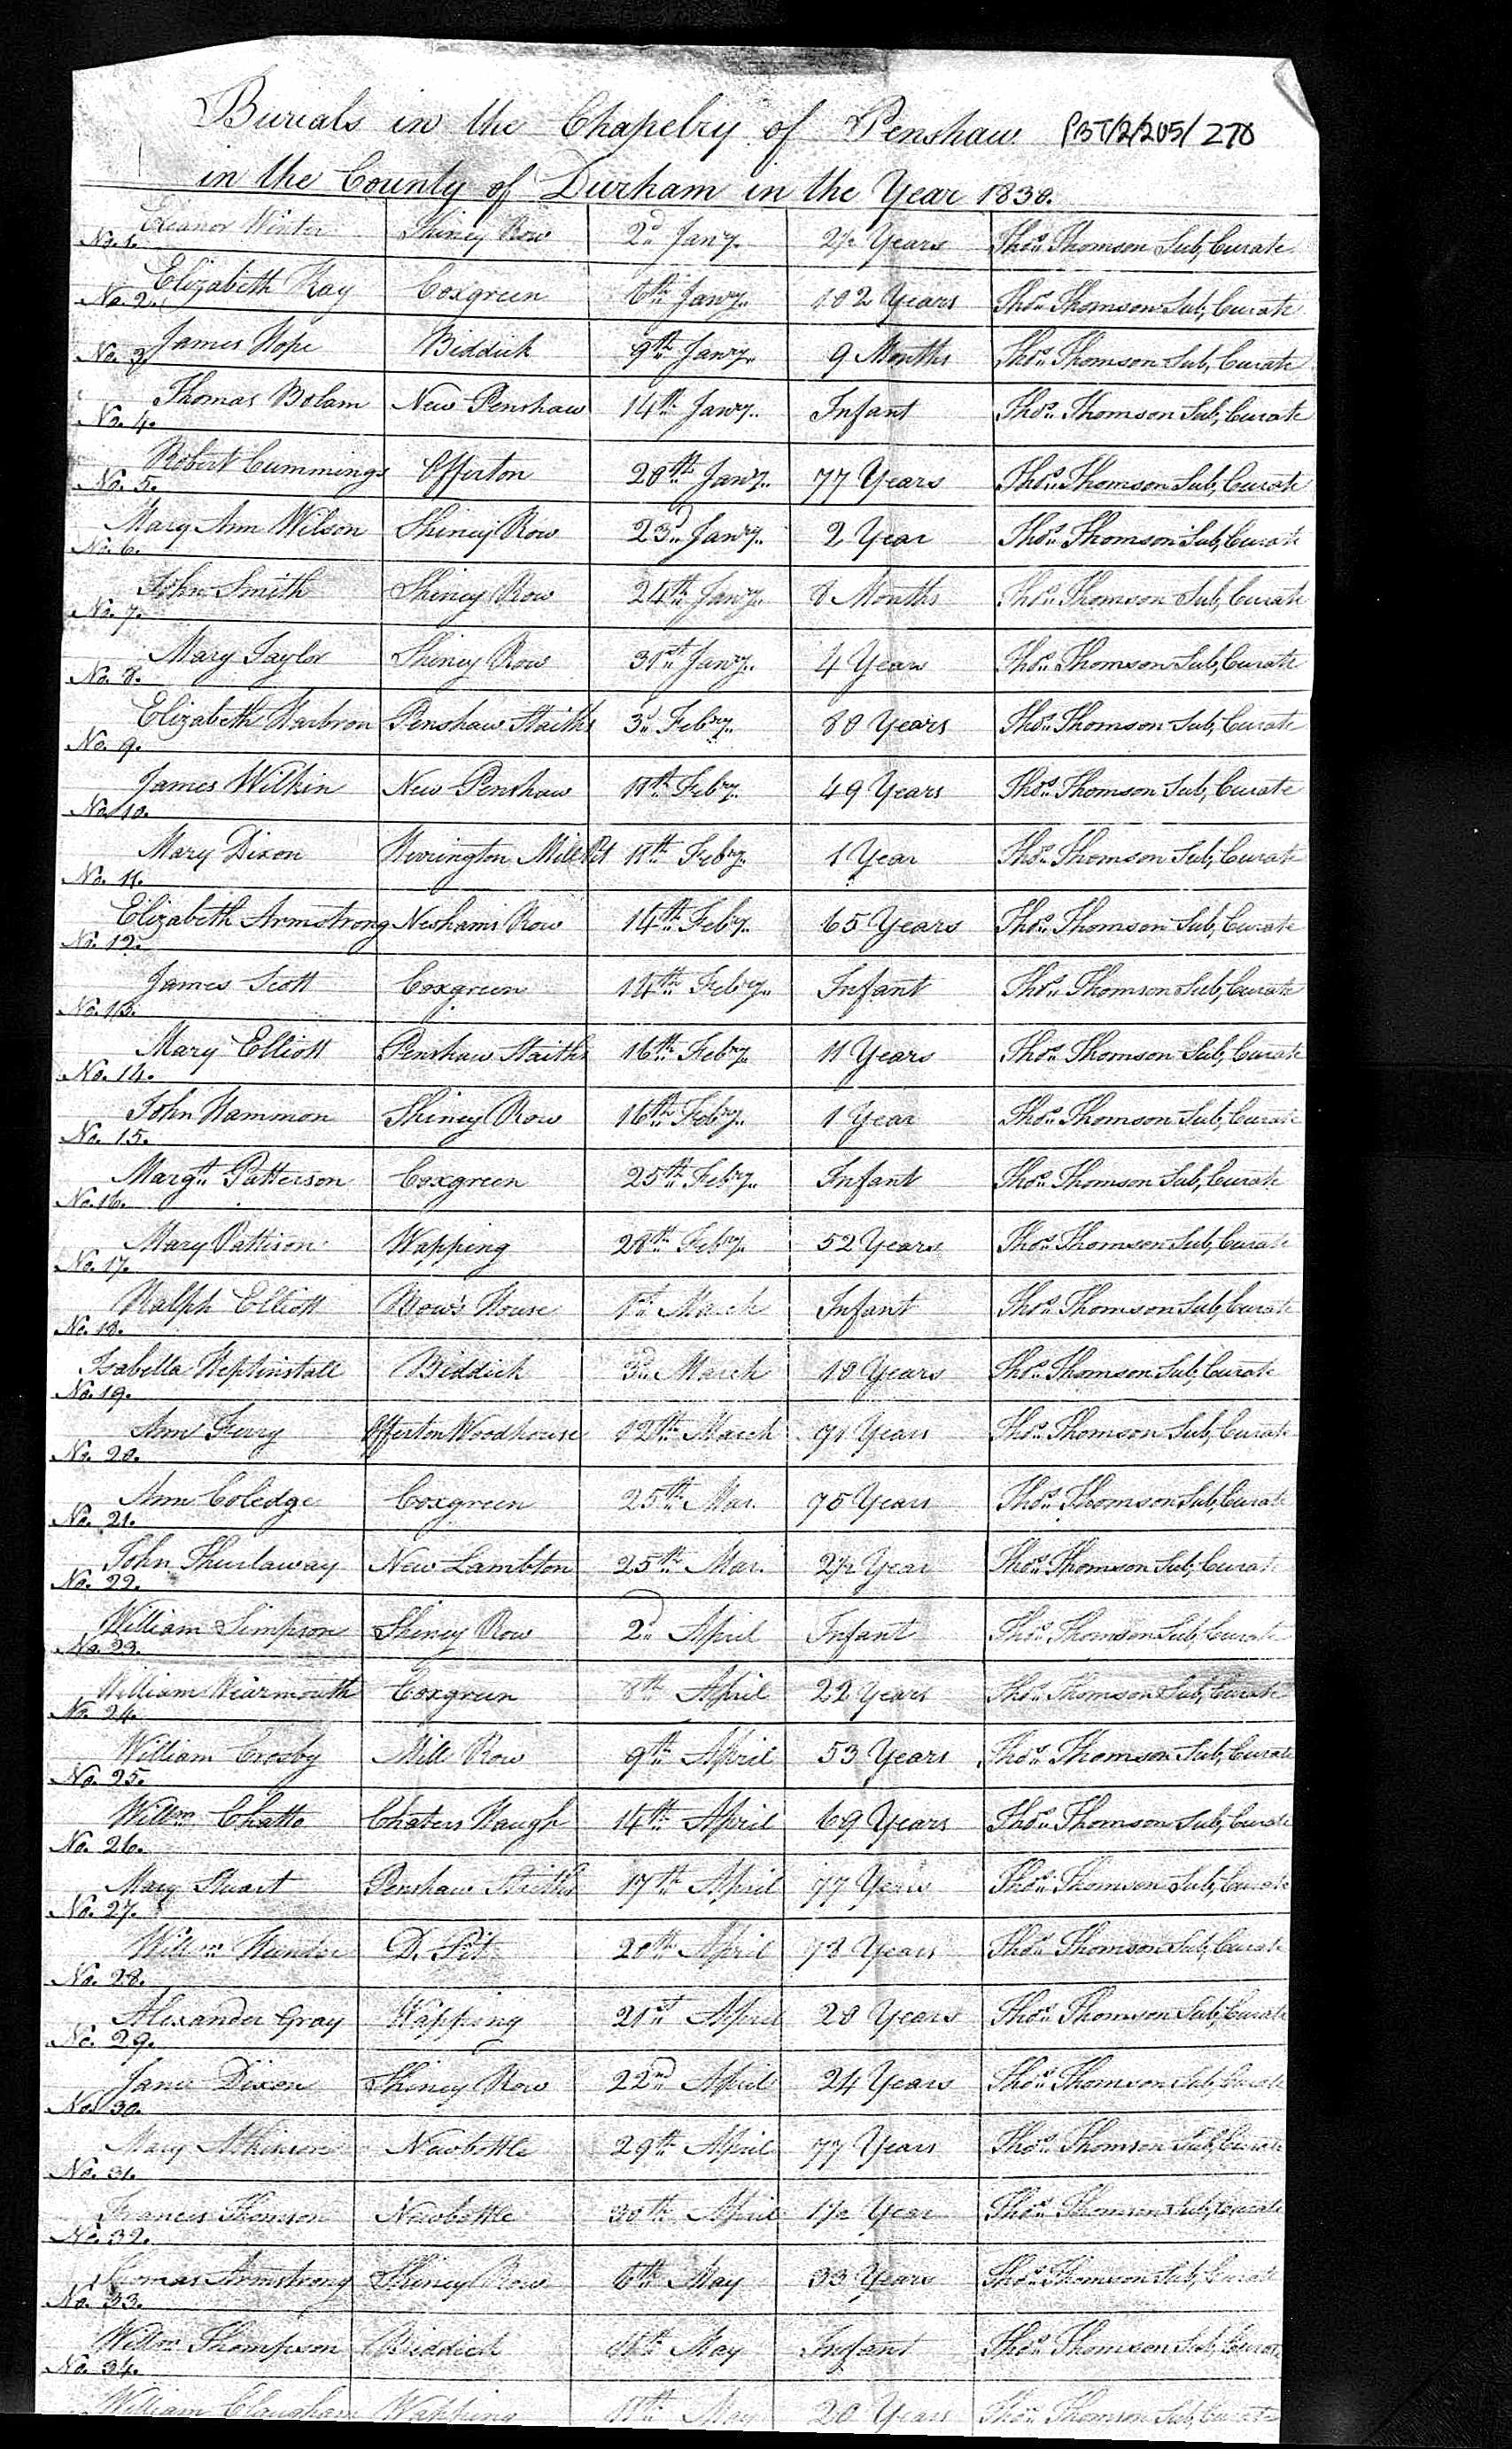 Burials in the Chapelry of Penshaw PBT/2/205/270
in the County of Durham in the Year 1830.
No. 1. Eleanor Winter Shiney Row 2d Jany. 2½ Years Thos. Thomson Sub, Curate
No. 2. Elizabeth Ray Coxgreen 6th Jany. 102 Years Thos. Thomson Sub, Curate
No. 3. James Hope Biddick 9th Jany. 9 Months Thos. Thomson Sub, Curate
No. 4. Thomas Bolam New Penshaw 14th Jany. Infant Thos. Thomson Sub, Curate
No. 5. Robert Cummings Offerton 20th Jany. 77 Years Thos. Thomson Sub, Curate
No. 6. Mary Ann Wilson Shiney Row 23d Jany. 2 Year Thos. Thomson Sub, Curate
No. 7. John Smith Shiney Row 24th Jany. 8 Months Thos. Thomson Sub, Curate
No. 8. Mary Taylor Shiney Row 31st Jany. 4 Years Thos. Thomson Sub, Curate
No. 9. Elizabeth Harbron Penshaw Staiths 3d Feby. 80 Years Thos. Thomson Sub, Curate
No. 10. James Wilkin New Penshaw 11th Feby. 49 Years Thos. Thomson Sub, Curate
No. 11. Mary Dixon Herrington Mill Pit 11th Feby. 1 Year Thos. Thomson Sub, Curate
No. 12. Elizabeth Armstrong Neshams Row 14th Feby. 65 Years Thos. Thomson Sub, Curate
No. 13. James Scott Coxgreen 14th Feby. Infant Thos. Thomson Sub, Curate
No. 14. Mary Elliott Penshaw Staiths 16th Feby. 11 Years Thos. Thomson Sub, Curate
No. 15. John Hammon Shiney Row 16th Feby. 1 Year Thos. Thomson Sub, Curate
No. 16. Margt. Patterson Coxgreen 25th Feby. Infant Thos. Thomson Sub, Curate
No. 17. Mary Pattison Wapping 28th Feby. 52 Years Thos. Thomson Sub, Curate
No. 18. Ralph Elliott House 1st March Infant Thos. Thomson Sub, Curate
No. 19. Isabella Heptinstall Biddick 3d March 10 Years Thos. Thomson Sub, Curate
No. 20. Ann Ferry Offerton Woodhouse 12th March 71 Years Thos. Thomson Sub, Curate
No. 21. Ann Coledge Coxgreen 25th Mar. 75 Years Thos. Thomson Sub, Curate
No. 22. John Thurlaway New Lambton 25th Mar. 2½ Year Thos. Thomson Sub, Curate
No. 23. William Simpson Shiney Row 2d April Infant Thos. Thomson Sub, Curate
No. 24. William Wearmouth Coxgreen 8th April 22 Years Thos. Thomson Sub, Curate
No. 25. William Crosby Mill Row 9th April 53 Years Thos. Thomson Sub, Curate
No. 26. Willm. Chatto Chaters Haugh 14th April 69 Years Thos. Thomson Sub, Curate
No. 27. Mary Stuart Penshaw Staiths 17th April 77 Years Thos. Thomson Sub, Curate
No. 28. Willm. Hunter D. Pit 20th April 78 Years Thos. Thomson Sub, Curate
No. 29. Alexander Gray Wapping 21st April 20 Years Thos. Thomson Sub, Curate
No. 30. Jane Dixon Shiney Row 22nd April 24 Years Thos. Thomson Sub, Curate
No. 31. Mary Atkinson Newbottle 29th April 77 Years Thos. Thomson Sub, Curate
No. 32. Francis Thomson Newbottle 30th April 1½ Year Thos. Thomson Sub, Curate
No. 33. Thomas Armstrong Shiney Row 6th May 33 Years Thos. Thomson Sub, Curate
No. 34. Willm. Thompson Biddick 11th May Infant Thos. Thomson Sub, Curate
William Claugham Wapping 11th May 20 Years Thos. Thomson Sub, Curate